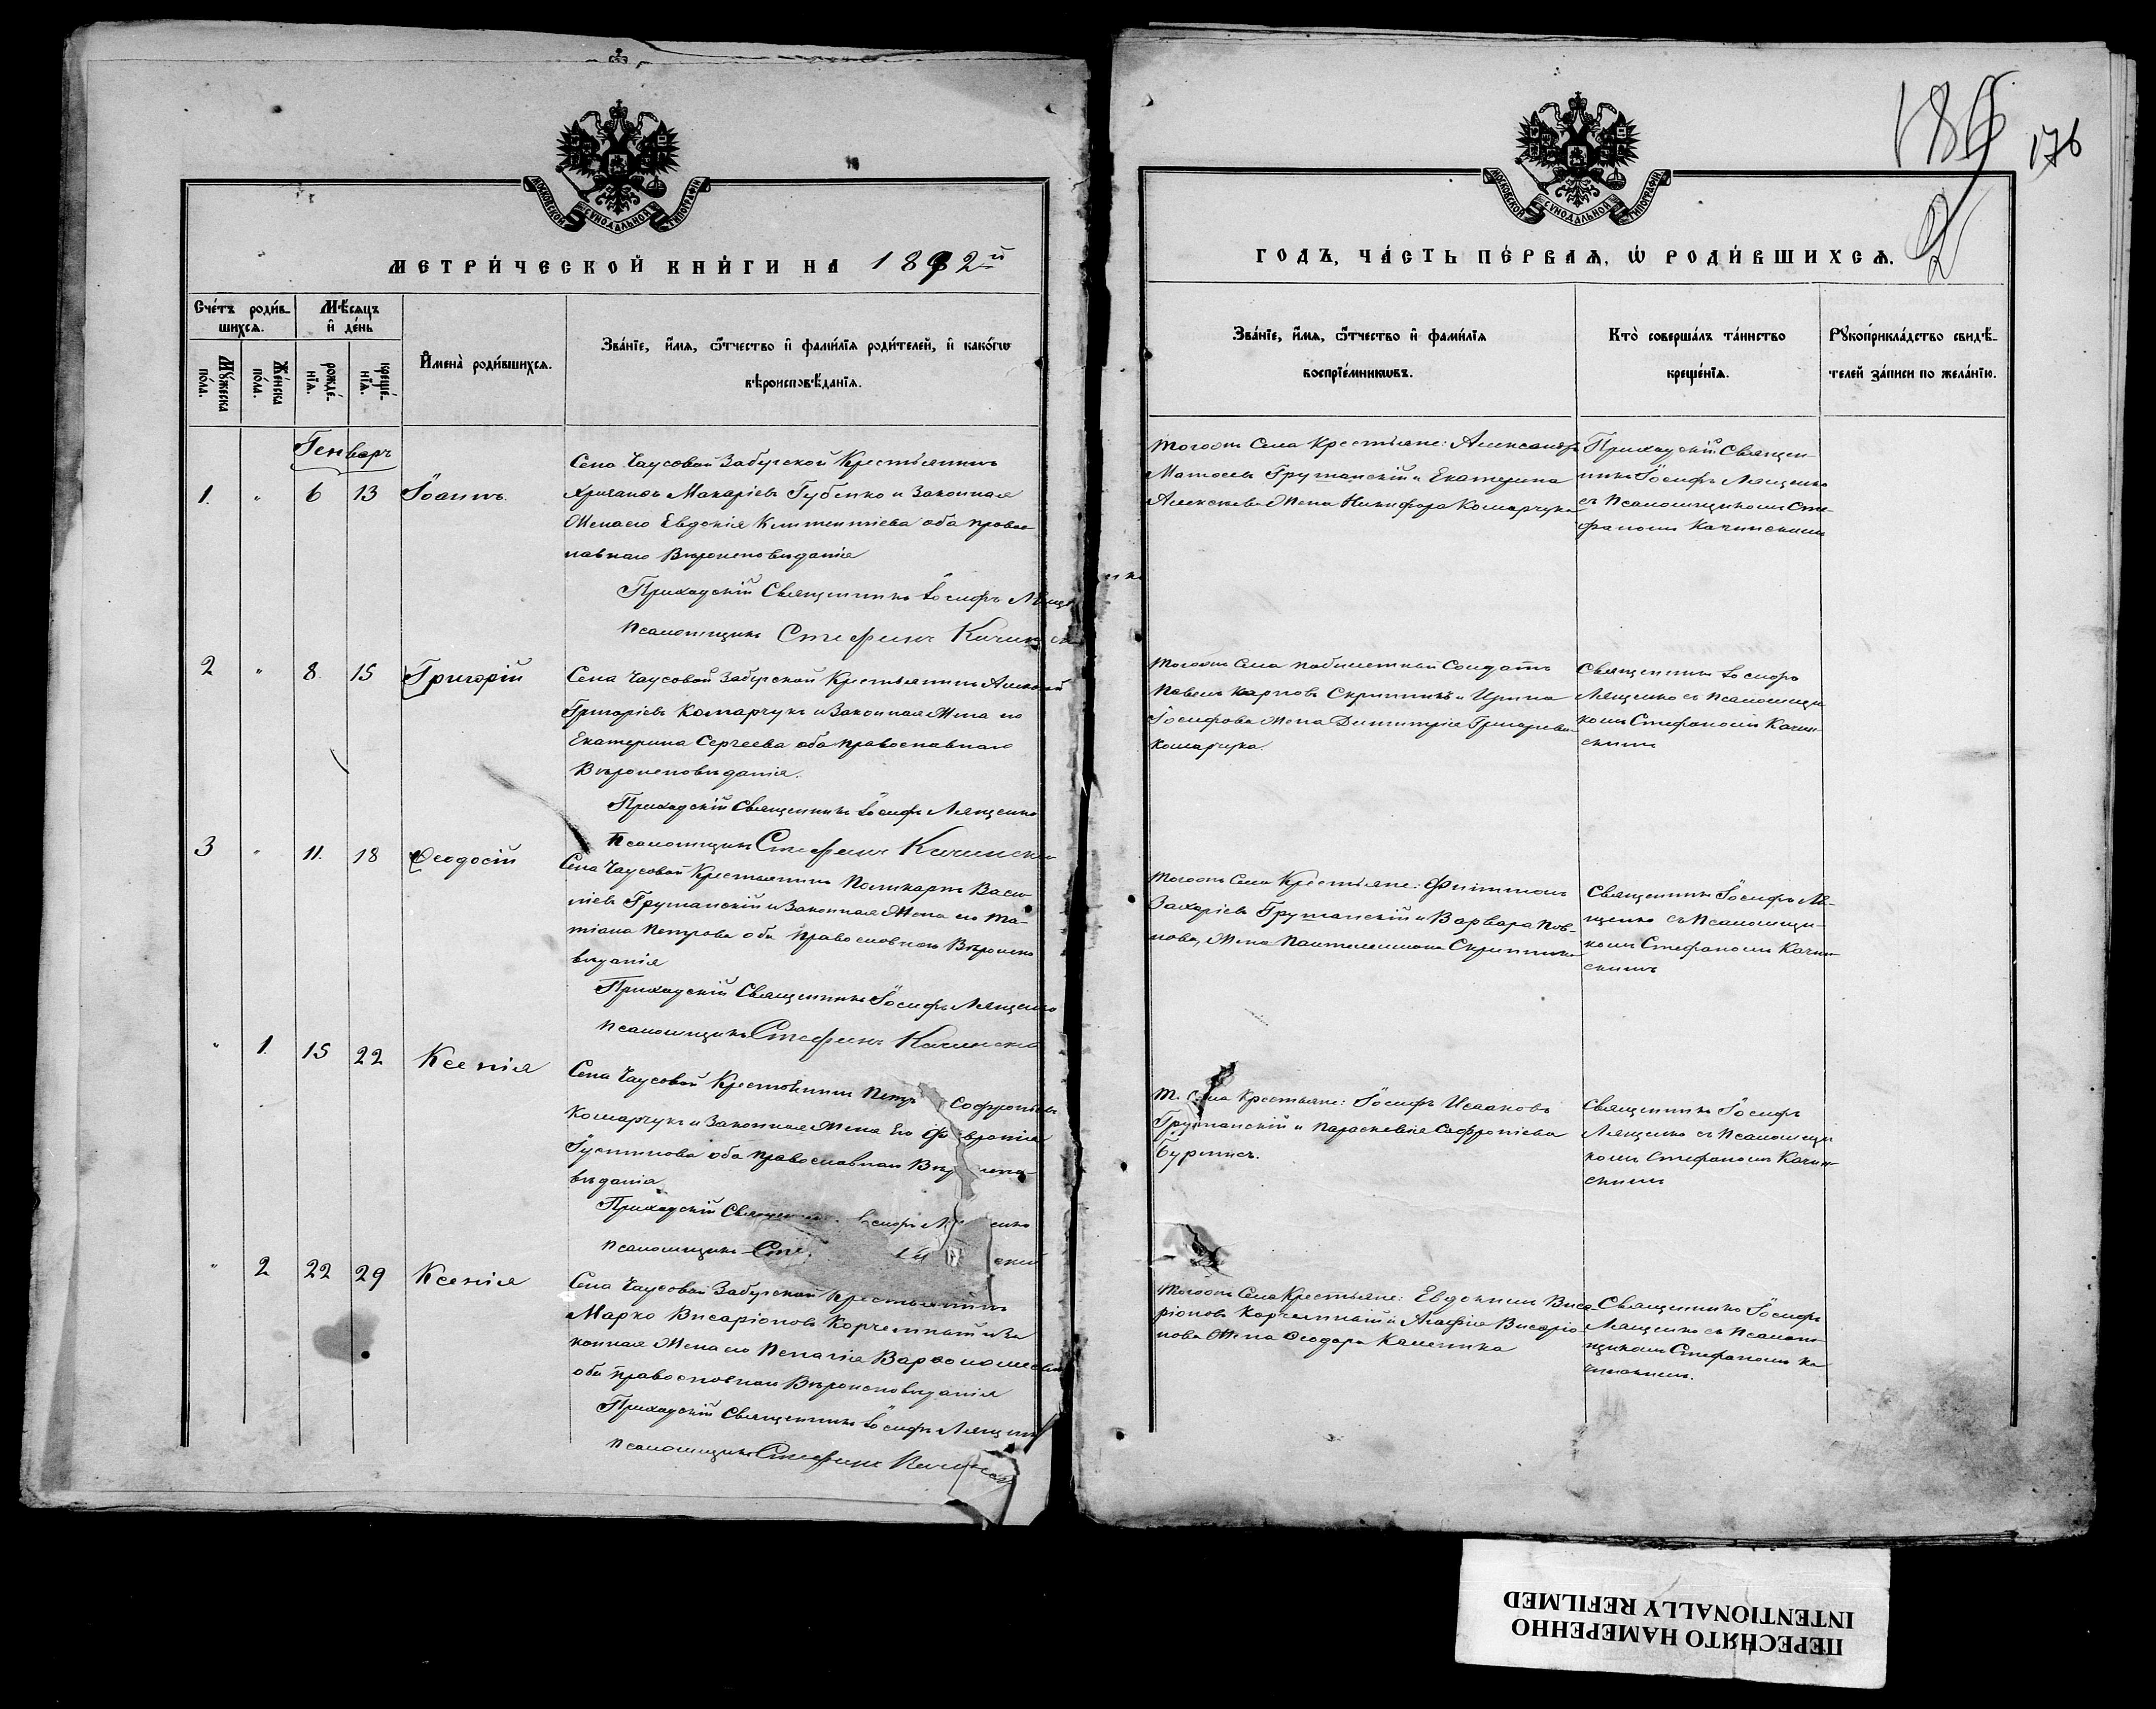 МОСКОВСКОЙ СѴНОДАЛЬНОЙ ТИПОГРАФІИ
МЕТРИ́ЧЕСКОЙ КНИ́ГИ НА 1892й
Сче́тъ роди́в-
шихсѧ.
Мѣ́сѧцъ
и҆ де́нь
Мꙋ́жеска
по́ла.
Же́нска
по́ла.
рожде́-
нїѧ.
креще́-
нїѧ.
И҆мена̀ роди́вшихсѧ.
Зва́нїе, и҆́мѧ, ѻ҆́тчество и҆ фами́лїѧ роди́телей, и҆ како́гѡ
вѣроисповѣ́данїѧ.
Генварь
1. " 6 13 Іоаннъ.
Села Чаусовой Забугской Крестьянинъ
Макаріевъ Губенко и Законная
Жена его Евдокія Климентіева оба право-
славнаго Вѣроисповѣданія
Приходскій Священникъ Іосифъ
Псаломщикъ Стефанъ
2 " 8. 15 Григорій
Села Чаусовой Забугской Крестьянинъ Алексѣй
Григоріевъ Комарчукъ и Законная Жена его
Екатерина Сергеева оба православнаго
Вѣроисповѣданія.
Приходскій Священникъ Іосифъ Лященко
Псаломщикъ Стефанъ Качинскій
3 " 11. 18 Ѳеодосій
Села Чаусовой Крестьянинъ Поликарпъ Васи-
ліевъ Грушанскій и Законная Жена его Та-
тіана Петрова оба православнаго Вѣроиспо
вѣданія
Приходскій Священникъ Іосифъ Лященко
Псаломщикъ Стефанъ Качинскій
" 1. 15 22 Ксенія
Села Чаусовой Крестьянинъ Петръ Софроніевъ
Комарчукъ и Законная Жена Его
Іустинова оба православнаго
вѣданія
Приходскій
Псаломщикъ
" 2 22 29 Ксенія
Села Чаусовой Забугской Крестьянинъ
Марко Висаріоновъ Корчемный и За
конная Жена его Пелагія
оба православнаго Вѣроисповѣданія
Приходскій Священникъ Іосифъ
Псаломщикъ Стефанъ
186 176
2
МОСКОВСКОЙ СѴНОДАЛЬНОЙ ТИПОГРАФІИ
ГОДЪ, ЧА́СТЬ ПЕ́РВАѦ, Ѡ҆ РОДИ́ВШИХСѦ.
Зва́нїе, и҆́мѧ, ѻ҆́тчество и҆ фами́лїѧ
воспрїе́мникѡвъ.
Кто̀ соверша́лъ та́инство
креще́нїѧ.
Рꙋкоприкла́дство свидѣ́-
телей за́писи по жела́нїю.
Тогожъ Села Крестьяне: Александръ
Матоевъ Грушанскій и Екатерина
Алексѣева Жена Никифора Комарчука
Приходскій Священ-
никъ Іосифъ Лященко
съ Псаломщикомъ Сте-
фаномъ Качинскимъ
Тогожъ Села побилетный Солдатъ
Павелъ Карповъ Скрипникъ и Ирина
Іосифова Жена Димитрія Григорьева
Комарчука.
Священникъ Іосифъ
Лященко съ Псаломщи
комъ Стефаномъ Качин-
скимъ
Тогожъ Села Крестьяне: Филимонъ
Захаріевъ Грушанскій и Варвара Пав-
лова, Жена Пантелеимона Скрипника
Священникъ Іосифъ Ля-
щенко съ Псаломщи-
комъ Стефаномъ Качин-
скимъ
Т. Села Крестьяне: Іосифъ Исааковъ
Грушанскій и Параскевія Софроніева
Священникъ Іосифъ
Лященко съ Псаломщи
комъ Стефаномъ Качин-
скимъ
Тогожъ Села Крестьяне: Евдокимъ Виса-
ріоновъ Корчемный и Агафія Висаріо-
нова Жена Ѳеодора
Священникъ Іосифъ
Лященко съ Псалом-
щикомъ Стефаномъ Ка
чинскимъ.
ПЕРЕСНЯТО НАМЕРЕННО
INTENTIONALLY REFILMED